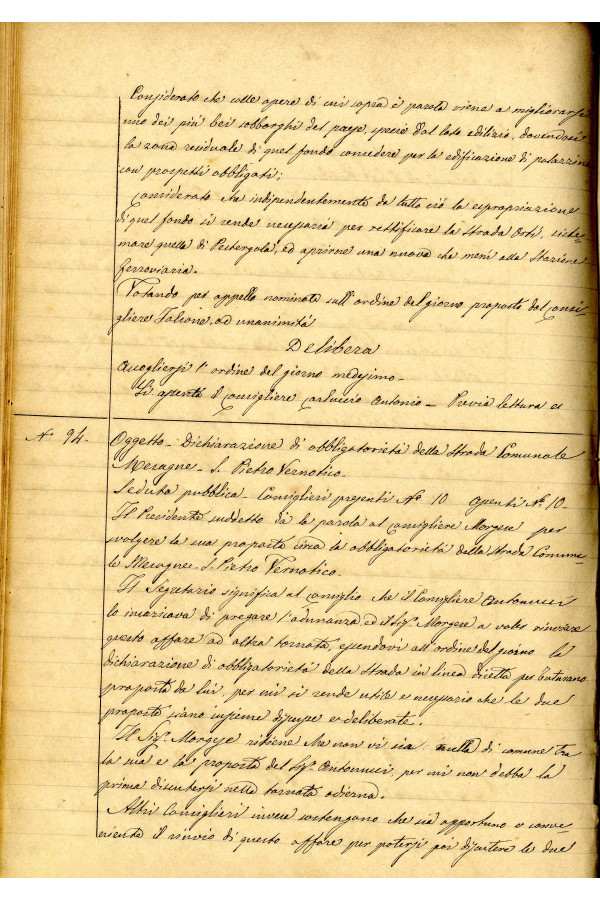 Considerato che colle opere di cui sopra è parola viene a migliorarsi
uno dei più bei sobborghi del paese, specie dal lato edilizio, dovendosi
la zona residuale di quel fondo concedere per la edificazione di palazzine
con prospetti obbligati;
Considerato che indipendentemente da tutto ciò la espropriazione
di quel fondo si rende necessaria per rettificare la Strada Orti, siste-
mare quella di Pestergola, ed aprirne una nuova che meni alla Stazione
ferroviaria.
Votando per appello nominale sull'ordine del giorno proposto dal consi-
gliere Falcone, ad unanimità
Delibera
Accogliersi l'ordine del giorno medesimo-
Si assenta il consigliere Carluccio Antonio- Previa lettura ec
N.º 94.- Oggetto- Dichiarazione di obbligatorietà della Strada Comunale
Mesagne- S. Pietro Vernotico.
Seduta pubblica- Consiglieri presenti Nº 10 Assenti Nº 10.-
Il Presidente suddetto dà la parola al consigliere Morgese per
svolgere la sua proposta circa la obbligatorietà della Strada Comuna-
le Mesagne- S. Pietro Vernotico.
Il Segretario significa al consiglio che il Consigliere Antonucci
lo incaricava di pregare l'adunanza, ed il Sig.r Morgese a voler rinviare
questo affare ad altra tornata, essendovi all'ordine del giorno la
dichiarazione di obbligatorietà della Strada in linea diretta per Tuturano
proposta da lui, per cui si rende utile e necessario che le due
proposte siano insieme discusse e deliberate.
Il Sig.r Morgese ritiene che non vi sia nulla di comune tra
la sua e la proposta del Sig.r Antonucci, per cui non debba la
prima discutersi nella tornata odierna.
Altri Consiglieri invece sostengono che sia opportuno e conve-
niente il rinvio di questo affare per potersi poi discutere le due